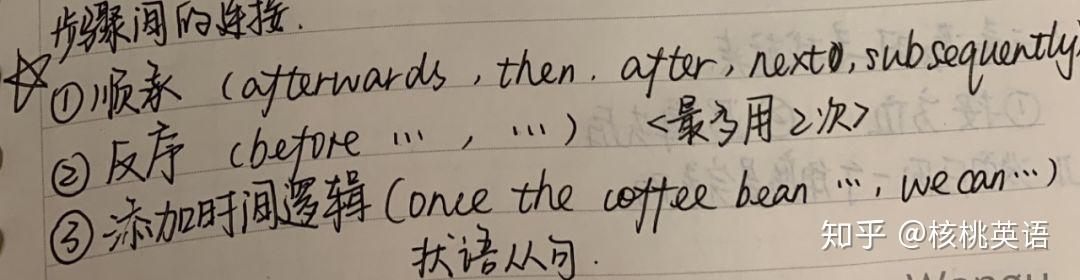 步骤间的连接.
☆①顺承 (afterwards, then. after, next, subsequently)
②反序 (before …, …) <最多用2次>
③添加时间逻辑 (once the coffee bean …, we can…)
状语从句.
知乎 @核桃英语